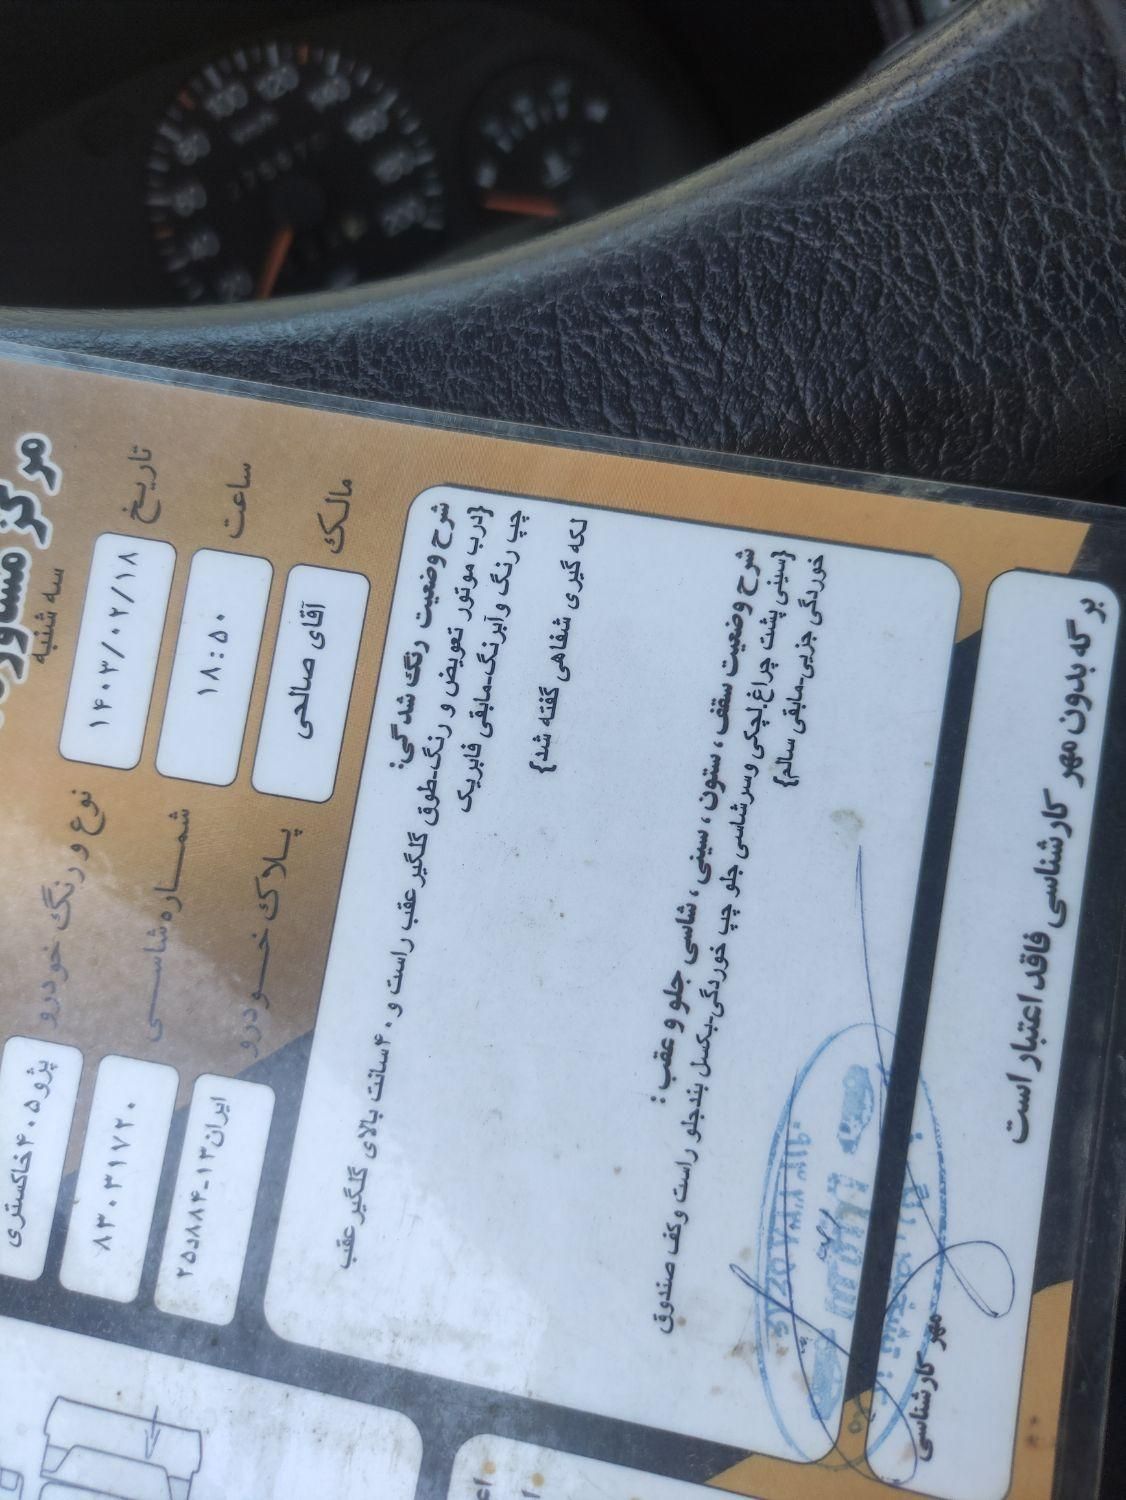 سه شنبه
تاریخ ۱۴۰۳/۰۲/۱۸
ساعت ۱۸:۵۰
مالک آقای صالحی
نوع و رنگ خودرو پژو ۴۰۵ خاکستری
شماره شاسی ۸۳۰۳۱۷۲۰
پلاک خودرو ایران۱۳-۸۸۴د۲۵
شرح وضعیت رنگ شدگی:
{درب موتور تعویض و رنگ-طوق گلگیر عقب راست و ۴۰سانت بالای گلگیر عقب
چپ رنگ وآبرنگ-مابقی فابریک
لکه گیری شفاهی گفته شد}
شرح وضعیت سقف ، ستون ، سینی ، شاسی جلو و عقب :
{سینی پشت چراغ،لچکی وسرشاسی جلو چپ خوردگی-بکسل بندجلو راست وکف صندوق
خوردگی جزیی-مابقی سالم}
مهر کارشناسی
برگه بدون مهر کارشناسی فاقد اعتبار است
100
120
140
160